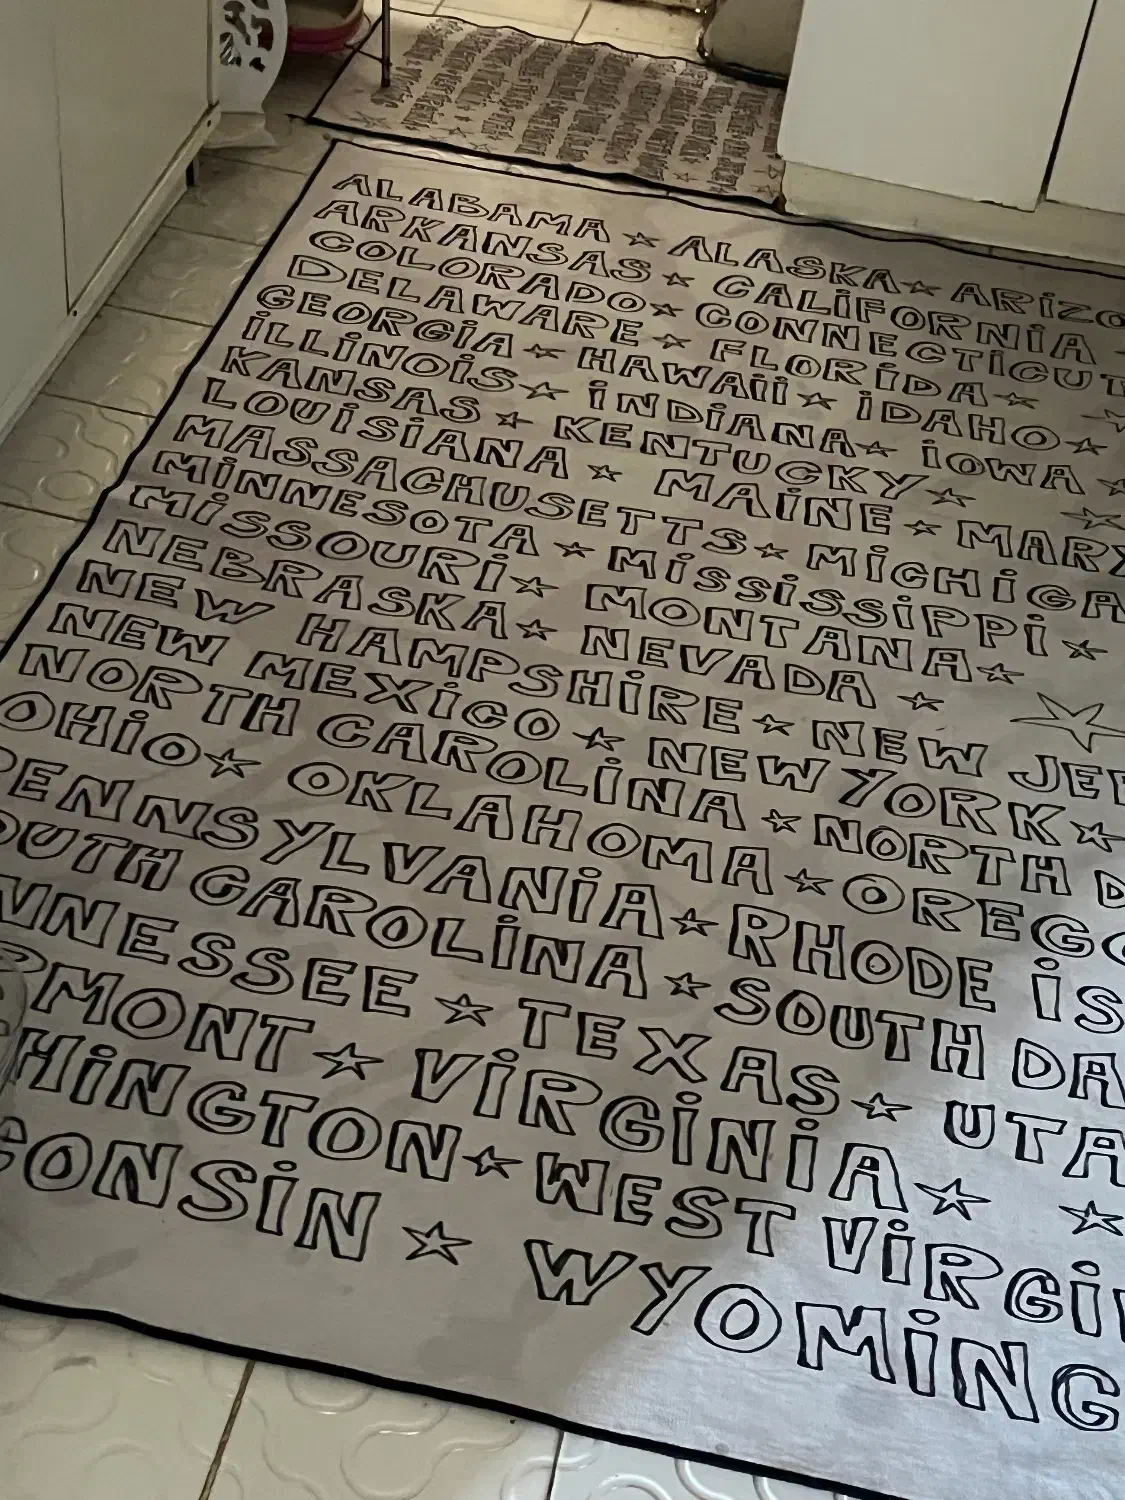 ALABAMA ☆ ALASKA ☆ ARIZO
ARKANSAS ☆ CALIFORNIA
COLORADO ☆ CONNECTICUT
DELAWARE ☆ FLORIDA ☆
GEORGIA ☆ HAWAII ☆ IDAHO ☆
ILLINOIS ☆ INDIANA ☆ IOWA ☆
KANSAS ☆ KENTUCKY ☆
LOUISIANA ☆ MAINE ☆ MARY
MASSACHUSETTS ☆ MICHIGA
MINNESOTA ☆ MISSISSIPPI ☆
MISSOURI ☆ MONTANA ☆
NEBRASKA ☆ NEVADA ☆
NEW HAMPSHIRE ☆ NEW JER
NEW MEXICO ☆ NEW YORK ☆
NORTH CAROLINA ☆ NORTH D
OHIO ☆ OKLAHOMA ☆ OREGO
PENNSYLVANIA ☆ RHODE IS
OUTH CAROLINA ☆ SOUTH DA
NNESSEE ☆ TEXAS ☆ UTA
RMONT ☆ VIRGINIA ☆ ☆
HINGTON ☆ WEST VIRGIN
CONSIN ☆ WYOMING